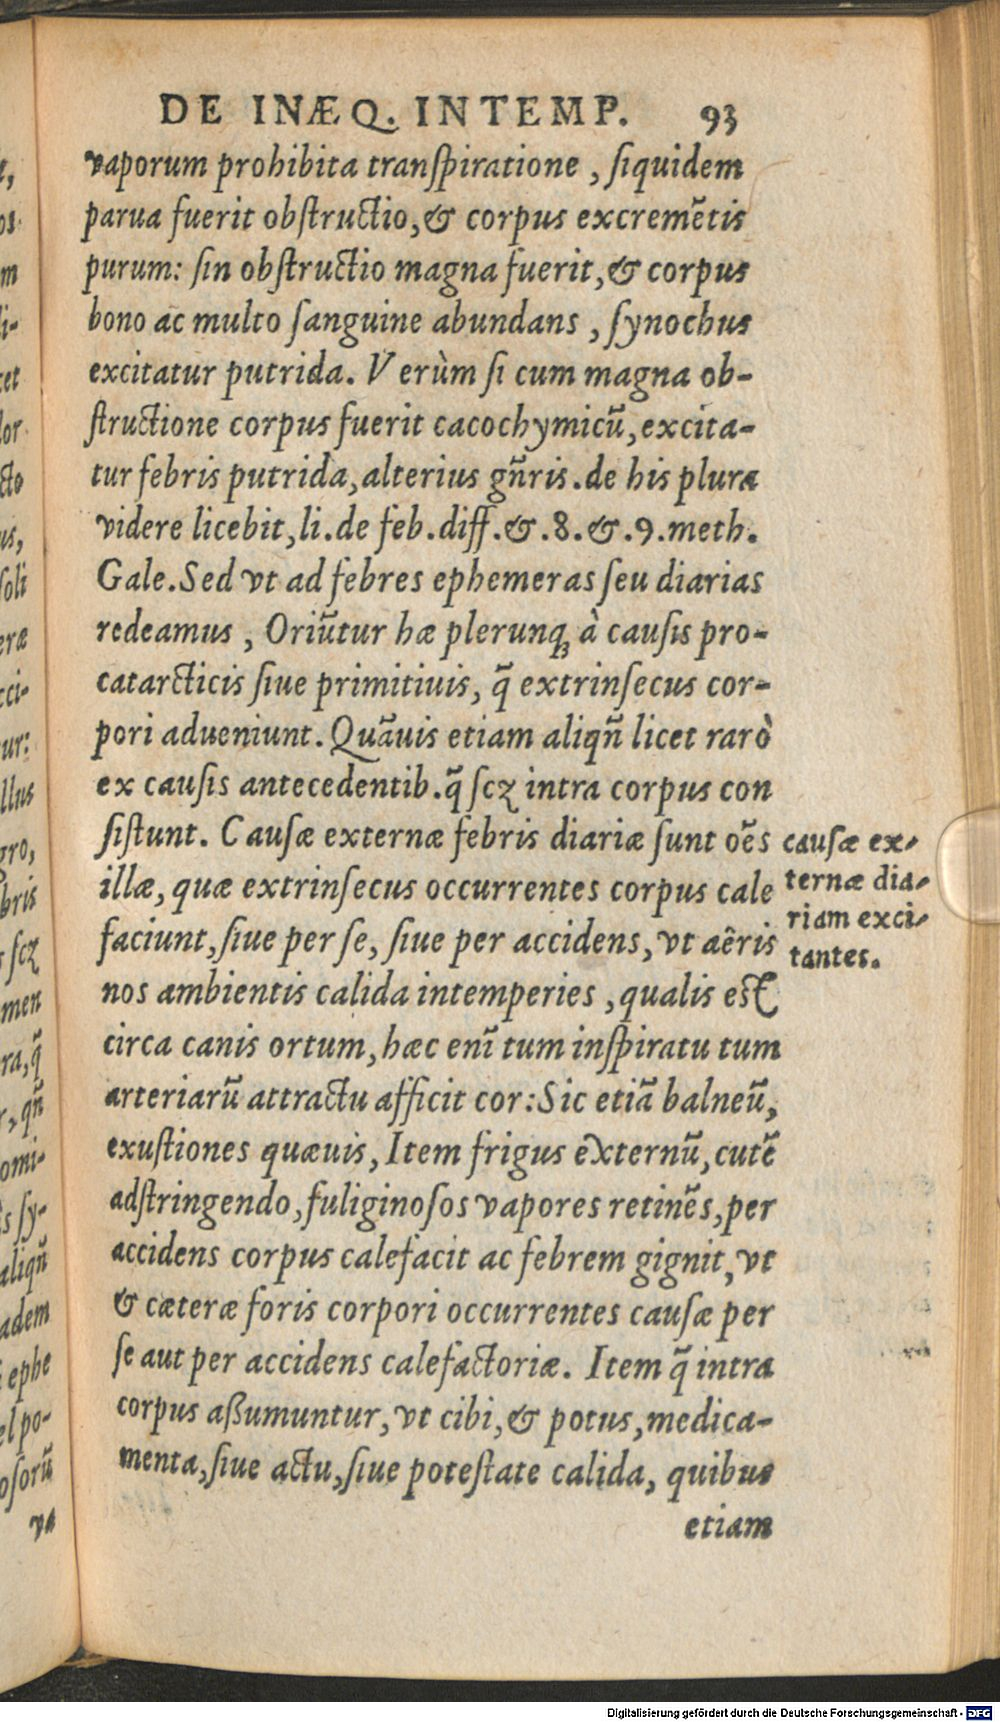 DE INÆQ. INTEMP. 93
vaporum prohibita transpiratione , siquidem
parua fuerit obstructio,& corpus excremẽtis
purum: sin obstructio magna fuerit,& corpus
bono ac multo sanguine abundans , synochus
excitatur putrida. Verùm si cum magna ob-
structione corpus fuerit cacochymicũ,excita-
tur febris putrida,alterius gñris.de his plura
videre licebit,li.de feb.diff.&.8.&.9.meth.
Gale.Sed vt ad febres ephemeras seu diarias
redeamus , Oriũtur hæ plerunqꝫ à causis pro-
catarcticis siue primitiuis, q̃ extrinsecus cor-
pori adueniunt. Quãuis etiam aliqñ licet rarò
ex causis antecedentib.q̃ scꝫ intra corpus con
sistunt. Causæ externæ febris diariæ sunt oẽs
illæ, quæ extrinsecus occurrentes corpus cale
faciunt,siue per se, siue per accidens, vt aẽris
nos ambientis calida intemperies , qualis est
circa canis ortum,hæc enĩ tum inspiratu tum
arteriarũ attractu afficit cor:Sic etiã balneũ,
exustiones quæuis, Item frigus ẽxternũ,cutẽ
adstringendo,fuliginosos vapores retinẽs,per
accidens corpus calefacit ac febrem gignit, vt
& cæteræ foris corpori occurrentes causæ per
se aut per accidens calefactoriæ. Item q̃ intra
corpus aßumuntur, vt cibi,& potus,medica-
menta,siue actu,siue potestate calida, quibus
etiam
causæ ex-
ternæ dia-
riam exci-
tantes.
Digitalisierung gefördert durch die Deutsche Forschungsgemeinschaft - DFG